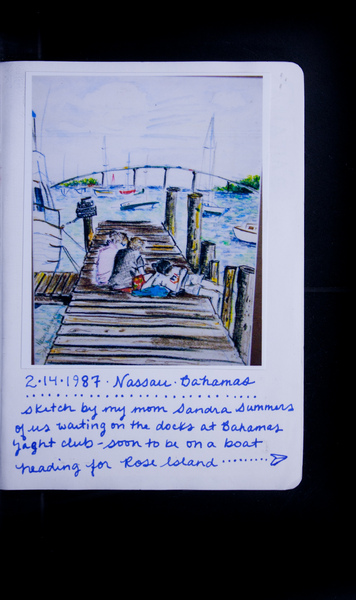 2·14·1987 · Nassau · Bahamas
sketch by my mom Sandra Summers
of us waiting on the docks at Bahamas
Yaght club - soon to be on a boat
heading for Rose Island